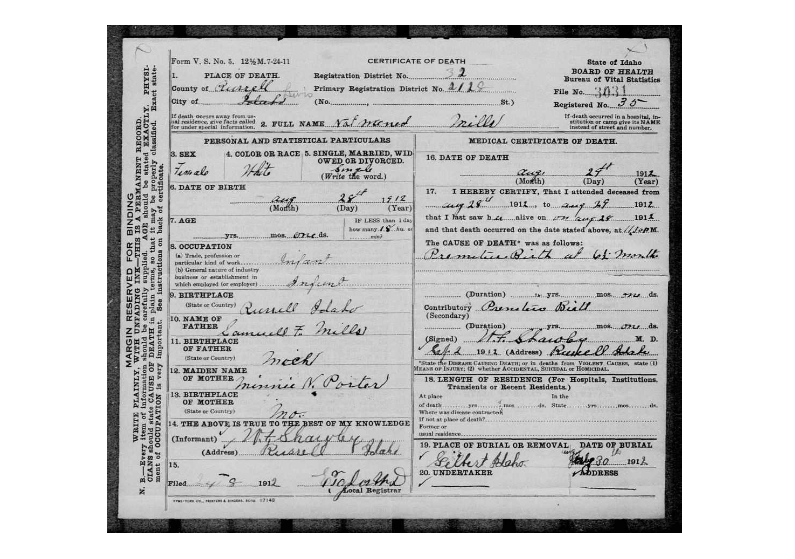 Form V. S. No. 5. 12½M.7-24-11
CERTIFICATE OF DEATH
State of Idaho
BOARD OF HEALTH
Bureau of Vital Statistics
File No. 3031
Registered No. 35
If death occurred in a hospital, institution or camp give its NAME instead of street and number.
1. PLACE OF DEATH.
County of
City of Idaho
Registration District No. 32
Primary Registration District No. 2128
(No. , St.)
If death occurs away from usual residence, give facts called for under special information.
2. FULL NAME Not named Mills
PERSONAL AND STATISTICAL PARTICULARS
3. SEX
Female
4. COLOR OR RACE
White
5. SINGLE, MARRIED, WIDOWED OR DIVORCED.
Single
(Write the word.)
6. DATE OF BIRTH
Aug 28th 1912
(Month) (Day) (Year)
7. AGE
yrs. mos. one ds.
IF LESS than 1 day, how many 18 hrs. or min?
8. OCCUPATION
(a) Trade, profession or particular kind of work Infant
(b) General nature of industry business or establishment in which employed (or employer) Infant
9. BIRTHPLACE
(State or Country) Russell Idaho
10. NAME OF FATHER Samuell F. Mills
11. BIRTHPLACE OF FATHER
(State or Country)
12. MAIDEN NAME OF MOTHER Minnie N. Porter
13. BIRTHPLACE OF MOTHER
(State or Country) Mo.
14. THE ABOVE IS TRUE TO THE BEST OF MY KNOWLEDGE
(Informant)
(Address) Russell Idaho
15.
Filed 8 1912
Local Registrar
MEDICAL CERTIFICATE OF DEATH.
16. DATE OF DEATH
Aug. 29th 1912
(Month) (Day) (Year)
17. I HEREBY CERTIFY, That I attended deceased from
Aug 28th 1912, to Aug 29 1912
that I last saw h alive on Aug 28 1912
and that death occurred on the date stated above, at M.
The CAUSE OF DEATH* was as follows:
Birth at 6½ months
(Duration) yrs. mos. one ds.
Contributory
(Secondary)
(Duration) yrs. mos. one ds.
(Signed) M. D.
2 1912 (Address) Russell Idaho
*State the DISEASE CAUSING DEATH; or in deaths from VIOLENT CAUSES, state (1) MEANS OF INJURY; (2) whether ACCIDENTAL, SUICIDAL or HOMICIDAL.
18. LENGTH OF RESIDENCE (For Hospitals, Institutions, Transients or Recent Residents.)
At place of death yrs. mos. ds. In the State yrs. mos. ds.
Where was disease contracted
If not at place of death?
Former or usual residence
19. PLACE OF BURIAL OR REMOVAL DATE OF BURIAL
Gilbert Idaho Aug 30 1912
20. UNDERTAKER ADDRESS
MARGIN RESERVED FOR BINDING
WRITE PLAINLY, WITH UNFADING INK—THIS IS A PERMANENT RECORD.
N. B.—Every item of information should be carefully supplied. AGE should be stated EXACTLY. PHYSICIANS should state CAUSE OF DEATH in plain terms, so that it may be properly classified. Exact statement of OCCUPATION is very important. See instructions on back of certificate.